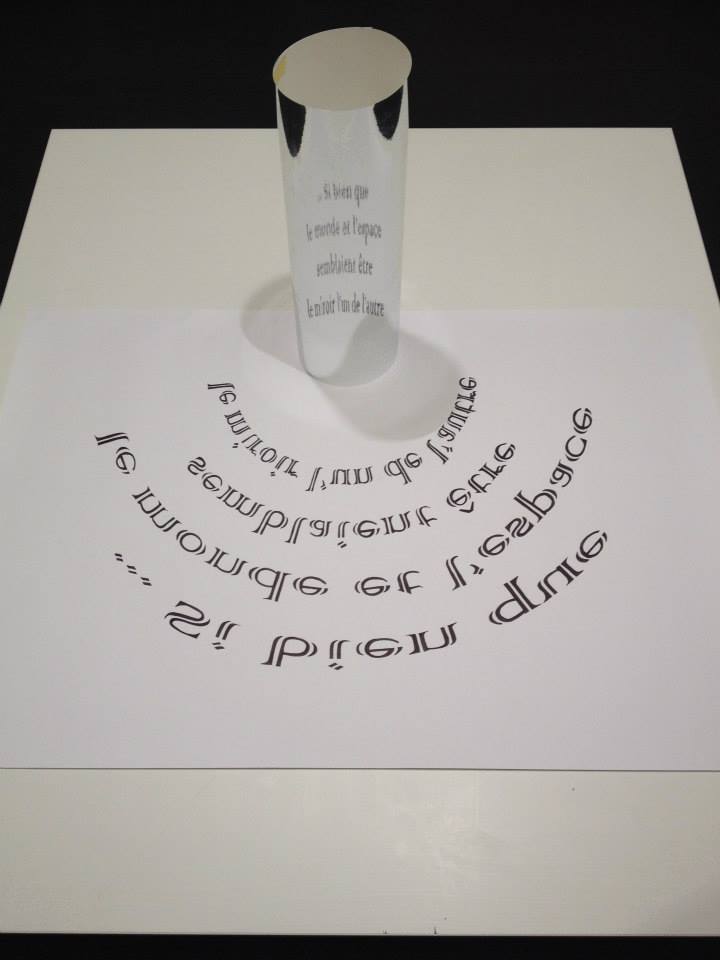 ... si bien que
le monde et l'espace
semblaient être
le miroir l'un de l'autre
le miroir l'un de l'autre
semblaient être
le monde et l'espace
... Si bien que